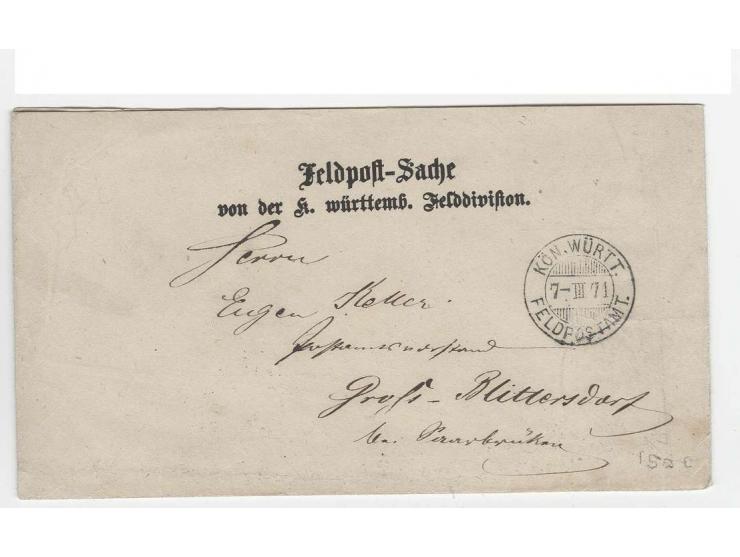 Feldpost-Sache
von der K. württemb. Felddivision.
KÖN. WÜRTT.
7-III 71
FELDPOSTAMT.
Herrn
Eugen Keller.
Postamtsvorstand
Gross-Blittersdorf
bei Saarbrüken